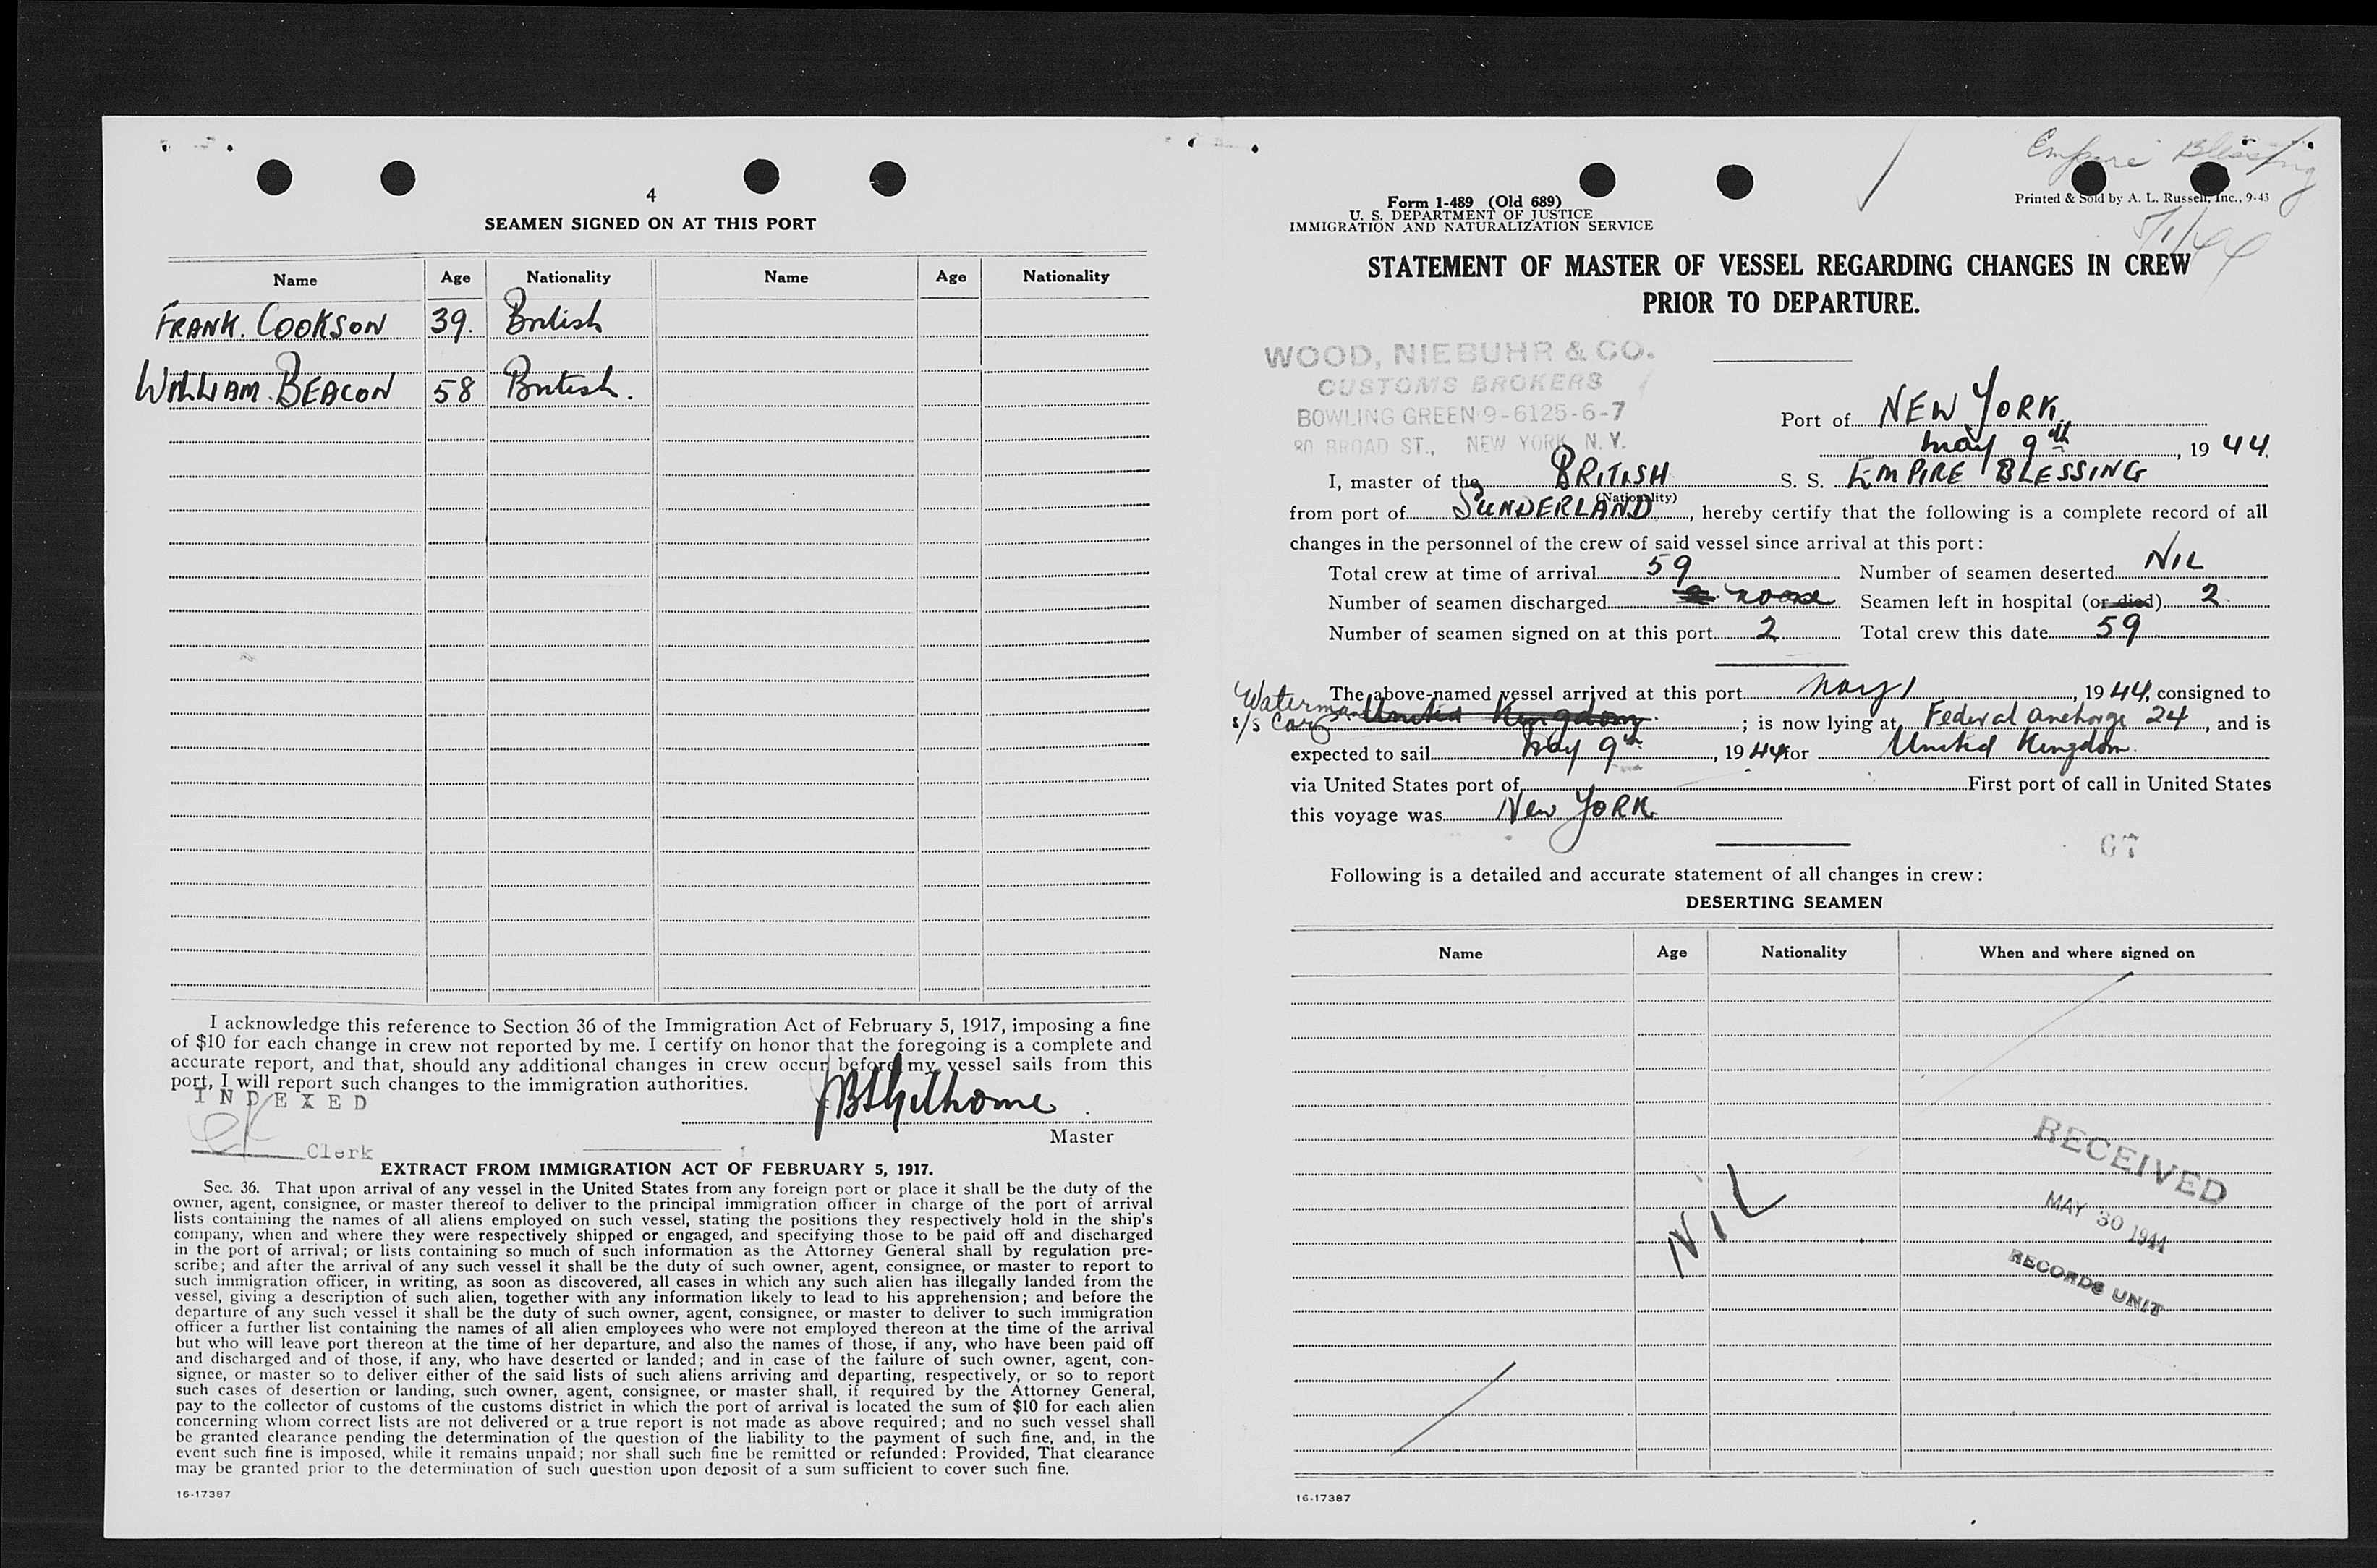 4
SEAMEN SIGNED ON AT THIS PORT
Name Age Nationality Name Age Nationality
FRANK. COOKSON 39. British
WILLIAM. BEACON 58 British.
I acknowledge this reference to Section 36 of the Immigration Act of February 5, 1917, imposing a fine
of $10 for each change in crew not reported by me. I certify on honor that the foregoing is a complete and
accurate report, and that, should any additional changes in crew occur before my vessel sails from this
port, I will report such changes to the immigration authorities.
INDEXED
Master
Clerk
EXTRACT FROM IMMIGRATION ACT OF FEBRUARY 5, 1917.
Sec. 36. That upon arrival of any vessel in the United States from any foreign port or place it shall be the duty of the
owner, agent, consignee, or master thereof to deliver to the principal immigration officer in charge of the port of arrival
lists containing the names of all aliens employed on such vessel, stating the positions they respectively hold in the ship's
company, when and where they were respectively shipped or engaged, and specifying those to be paid off and discharged
in the port of arrival; or lists containing so much of such information as the Attorney General shall by regulation pre-
scribe; and after the arrival of any such vessel it shall be the duty of such owner, agent, consignee, or master to report to
such immigration officer, in writing, as soon as discovered, all cases in which any such alien has illegally landed from the
vessel, giving a description of such alien, together with any information likely to lead to his apprehension; and before the
departure of any such vessel it shall be the duty of such owner, agent, consignee, or master to deliver to such immigration
officer a further list containing the names of all alien employees who were not employed thereon at the time of the arrival
but who will leave port thereon at the time of her departure, and also the names of those, if any, who have been paid off
and discharged and of those, if any, who have deserted or landed; and in case of the failure of such owner, agent, con-
signee, or master so to deliver either of the said lists of such aliens arriving and departing, respectively, or so to report
such cases of desertion or landing, such owner, agent, consignee, or master shall, if required by the Attorney General,
pay to the collector of customs of the customs district in which the port of arrival is located the sum of $10 for each alien
concerning whom correct lists are not delivered or a true report is not made as above required; and no such vessel shall
be granted clearance pending the determination of the question of the liability to the payment of such fine, and, in the
event such fine is imposed, while it remains unpaid; nor shall such fine be remitted or refunded: Provided, That clearance
may be granted prior to the determination of such question upon deposit of a sum sufficient to cover such fine.
16-17387
Empire Blessing
5/1/44
Form 1-489 (Old 689)
U. S. DEPARTMENT OF JUSTICE
IMMIGRATION AND NATURALIZATION SERVICE
Printed & Sold by A. L. Russell, Inc., 9-43
STATEMENT OF MASTER OF VESSEL REGARDING CHANGES IN CREW
PRIOR TO DEPARTURE.
WOOD, NIEBUHR & CO.
CUSTOMS BROKERS
BOWLING GREEN 9-6125-6-7
80 BROAD ST., NEW YORK, N. Y.
Port of NEW YORK
May 9th, 1944.
I, master of the BRITISH S. S. EMPIRE BLESSING
(Nationality)
from port of SUNDERLAND, hereby certify that the following is a complete record of all
changes in the personnel of the crew of said vessel since arrival at this port:
Total crew at time of arrival 59 Number of seamen deserted NIL
Number of seamen discharged none Seamen left in hospital (or died) 2
Number of seamen signed on at this port 2 Total crew this date 59
The above-named vessel arrived at this port May 1, 1944, consigned to
Waterman
s/s Corp United Kingdom; is now lying at Federal anchorge 24, and is
expected to sail May 9th, 1944 for United Kingdom.
via United States port of First port of call in United States
this voyage was New YORK
67
Following is a detailed and accurate statement of all changes in crew:
DESERTING SEAMEN
Name Age Nationality When and where signed on
NIL
RECEIVED
MAY 30 1944
RECORDS UNIT
16-17387